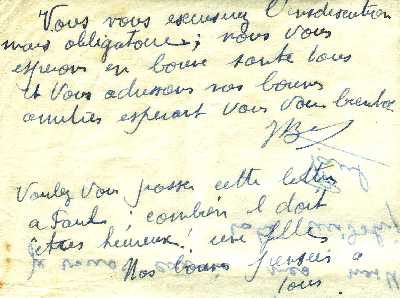 Vous nous excuserez l'indiscretion
mais obligatoire ; nous vous
esperons en bonne santé tous
et Vous adressons nos bonnes
amitiés esperant Vous voir bientot
JB
Voulez Vous passer cette lettre
a Paul ; combien il doit
être heureux ! une fille
Nos bonnes pensées a
tous.